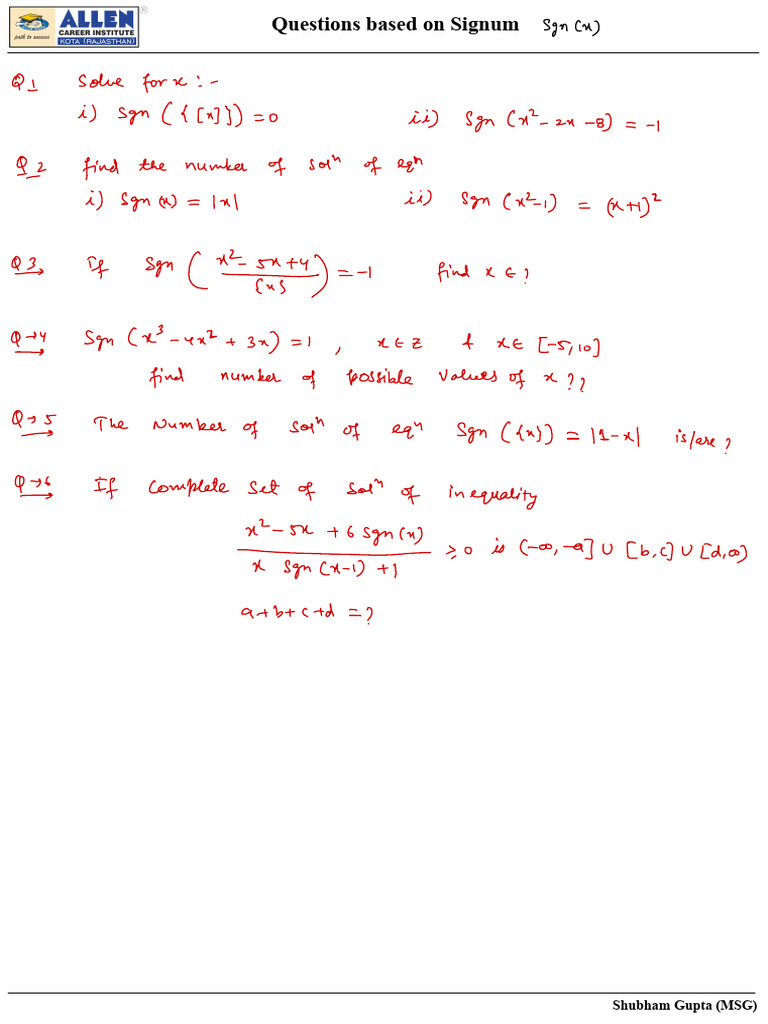 ALLEN ®
CAREER INSTITUTE
KOTA (RAJASTHAN)
path to success
Questions based on Signum Sgn (x)
Q1 Solve for x :-
i) Sgn ( { [x] } ) = 0 ii) Sgn (x² - 2x - 8) = -1
Q2 find the number of solⁿ of eqⁿ
i) Sgn (x) = |x| ii) Sgn (x²-1) = (x+1)²
Q3 If Sgn ( (x² - 5x + 4) / {x} ) = -1 find x ∈ ?
Q→4 Sgn (x³ - 4x² + 3x) = 1 , x ∈ Z & x ∈ [-5, 10]
find number of possible values of x ??
Q→5 The Number of solⁿ of eqⁿ Sgn ({x}) = |1-x| is/are ?
Q→6 If complete set of solⁿ of inequality
(x² - 5x + 6 Sgn (x)) / (x Sgn (x-1) + 1) ≥ 0 is (-∞, -a] ∪ [b, c] ∪ [d, ∞)
a+b+c+d = ?
Shubham Gupta (MSG)